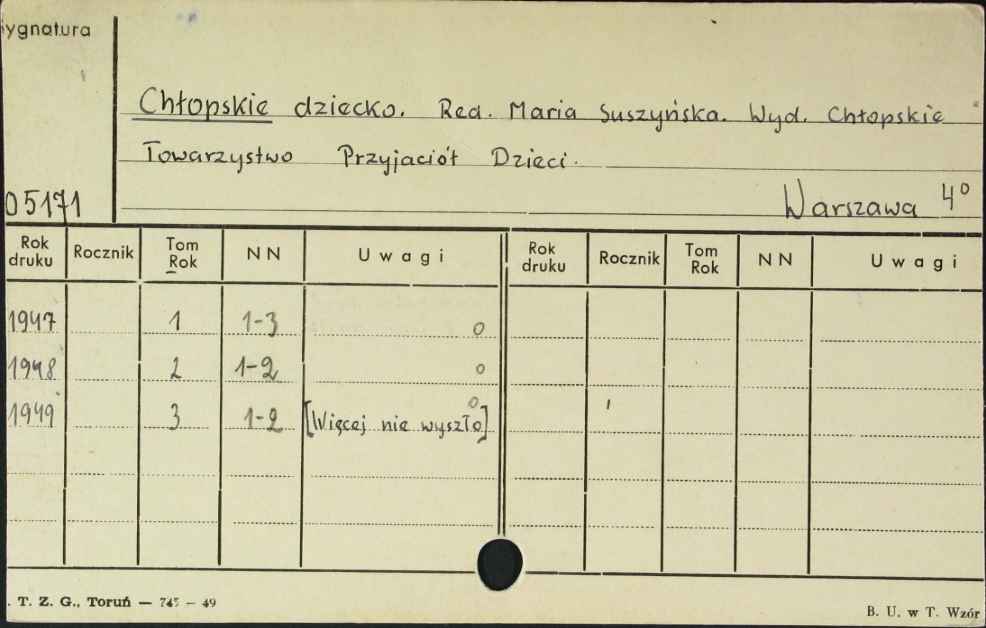 ygnatura
Chłopskie dziecko. Red. Maria Suszyńska. Wyd. Chłopskie
Towarzystwo Przyjaciół Dzieci.
05171
Warszawa 4⁰
Rok druku Rocznik Tom Rok NN Uwagi Rok druku Rocznik Tom Rok NN Uwagi
1947 1 1-3 o
1948 2 1-2 o
1949 3 1-2 [Więcej nie wyszło] o
. T. Z. G., Toruń — 745 — 49
B. U. w T. Wzór